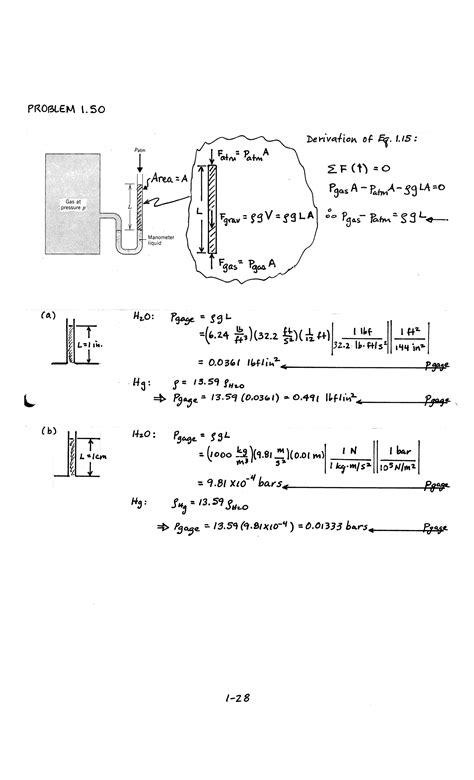 PROBLEM 1.50
Derivation of Eq. 1.15:
Patm
Area = A
Gas at
pressure p
L
Manometer
liquid
Fatm = Patm A
L
Fgrav = ρgV = ρgLA
Fgas = Pgas A
ΣF(↑) = 0
Pgas A - Patm A - ρgLA = 0
∴ Pgas - Patm = ρgL
(a)
L = 1 in.
H2O: Pgage = ρgL
= (6.24 lb/ft³)(32.2 ft/s²)(1/12 ft) |1 lbf / 32.2 lb·ft/s²| |1 ft² / 144 in²|
= 0.0361 lbf/in² Pgage
Hg: ρ = 13.59 ρH2O
⇒ Pgage = 13.59 (0.0361) = 0.491 lbf/in² Pgage
(b)
L = 1 cm
H2O: Pgage = ρgL
= (1000 kg/m³)(9.81 m/s²)(0.01 m) |1 N / 1 kg·m/s²| |1 bar / 10⁵ N/m²|
= 9.81 X10⁻⁴ bars Pgage
Hg: ρHg = 13.59 ρH2O
⇒ Pgage = 13.59 (9.81X10⁻⁴) = 0.01333 bars Pgage
1-28